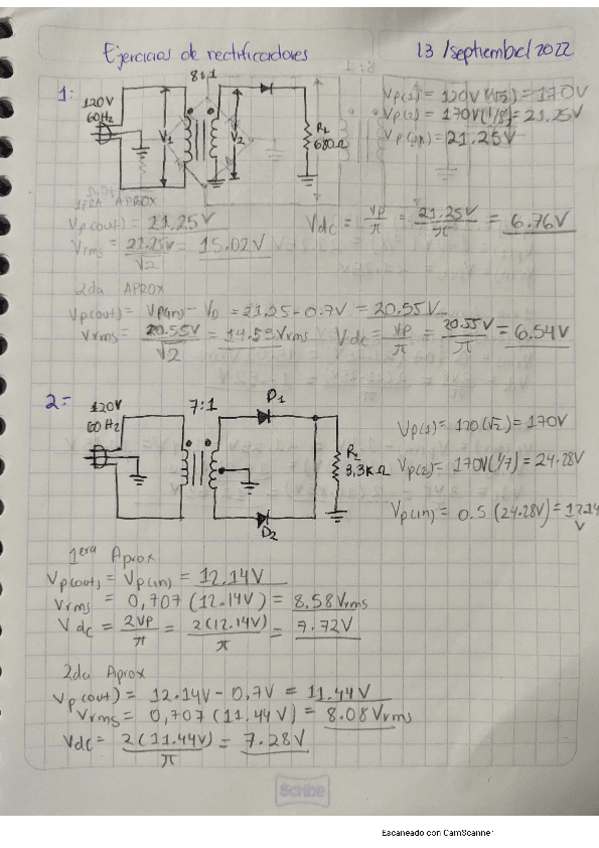 Ejercicios de rectificadores 13/septiembre/2022
1:
8:1
120V
60Hz
V1
V2
RL
680Ω
Vp(1) = 120V(√2) = 170V
Vp(2) = 170V(1/8) = 21.25V
Vp(in) = 21.25V
1ERA APROX
Vp(out) = 21.25V
Vrms = 21.25V/√2 = 15.02V
Vdc = Vp/π = 21.25V/π = 6.76V
2da APROX
Vp(out) = Vp(in) - VD = 21.25 - 0.7V = 20.55V
Vrms = 20.55V/√2 = 14.53Vrms Vdc = Vp/π = 20.55V/π = 6.54V
2=
120V
60Hz
7:1
D1
D2
RL
3,3KΩ
Vp(1) = 120(√2) = 170V
Vp(2) = 170V(1/7) = 24.28V
Vp(in) = 0.5 (24.28V) = 12.14
V
1era Aprox
Vp(out) = Vp(in) = 12.14V
Vrms = 0,707 (12.14V) = 8.58Vrms
Vdc = 2Vp/π = 2(12.14V)/π = 7.72V
2da Aprox
Vp(out) = 12.14V - 0,7V = 11.44V
Vrms = 0,707 (11.44V) = 8.08Vrms
Vdc = 2(11.44V)/π = 7.28V
Scribe
Escaneado con CamScanner